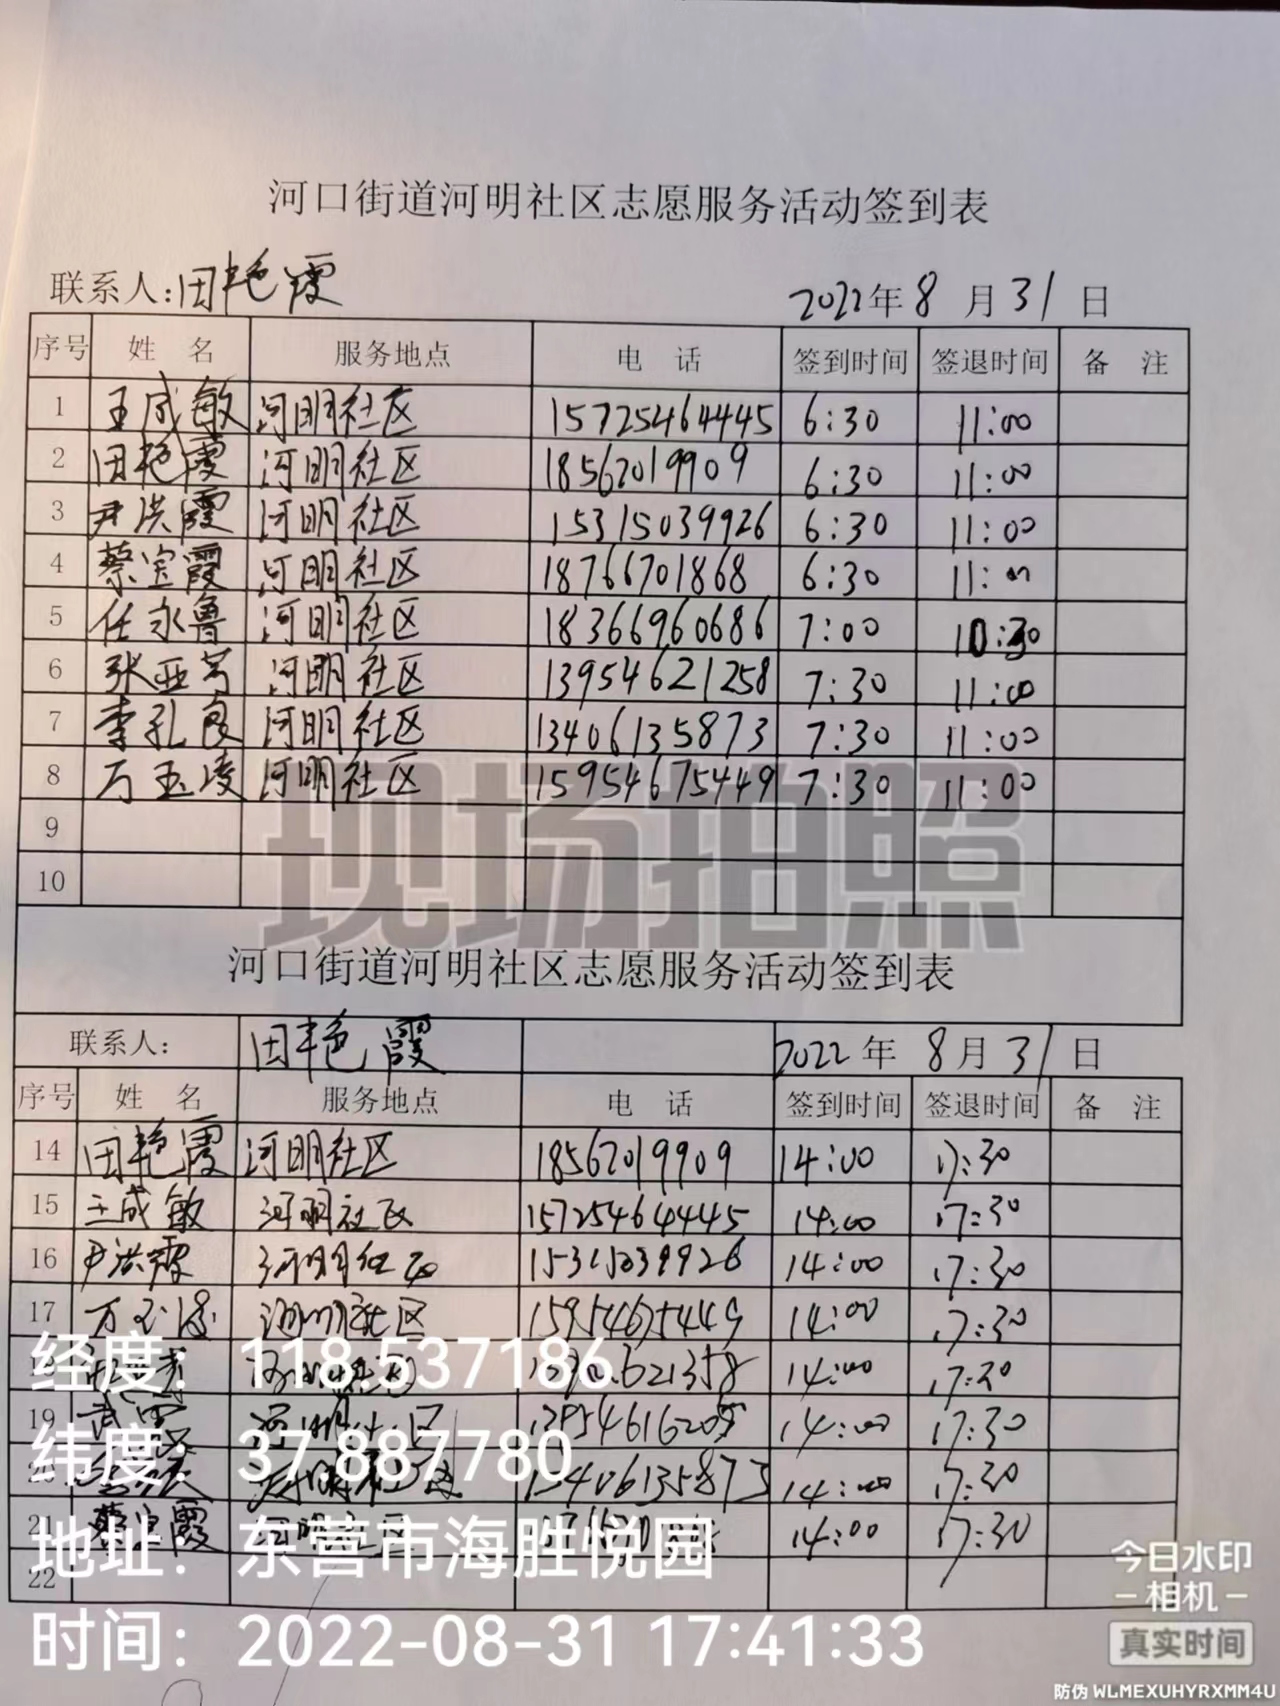 河口街道河明社区志愿服务活动签到表
联系人:田艳霞 2022年8月31日
序号 姓名 服务地点 电话 签到时间 签退时间 备注
1 王成敏 河明社区 15725464445 6:30 11:00
2 田艳霞 河明社区 18562019909 6:30 11:00
3 尹洪霞 河明社区 15315039926 6:30 11:00
4 蔡宝霞 河明社区 18766701868 6:30 11:00
5 任永鲁 河明社区 18366960686 7:00 10:30
6 张亚 河明社区 13954621258 7:30 11:00
7 李孔良 河明社区 13406135873 7:30 11:00
8 万玉凌 河明社区 15954675449 7:30 11:00
9
10
现场拍照
河口街道河明社区志愿服务活动签到表
联系人: 田艳霞 2022年8月31日
序号 姓名 服务地点 电话 签到时间 签退时间 备注
14 田艳霞 河明社区 18562019909 14:00 17:30
15 王成敏 河明社区 15725464445 14:00 17:30
16 尹洪霞 河明社区 15315039926 14:00 17:30
17 万玉凌 河明社区 15954675449 14:00 17:30
14:00 17:30
经度：118.537186
19 14:00 17:30
纬度：37.887780
20 13406135873 14:00 17:30
21 蔡宝霞 14:00 17:30
地址：东营市海胜悦园
22
时间：2022-08-31 17:41:33
今日水印
-相机-
真实时间
防伪 WLMEXUHYRXMM4U